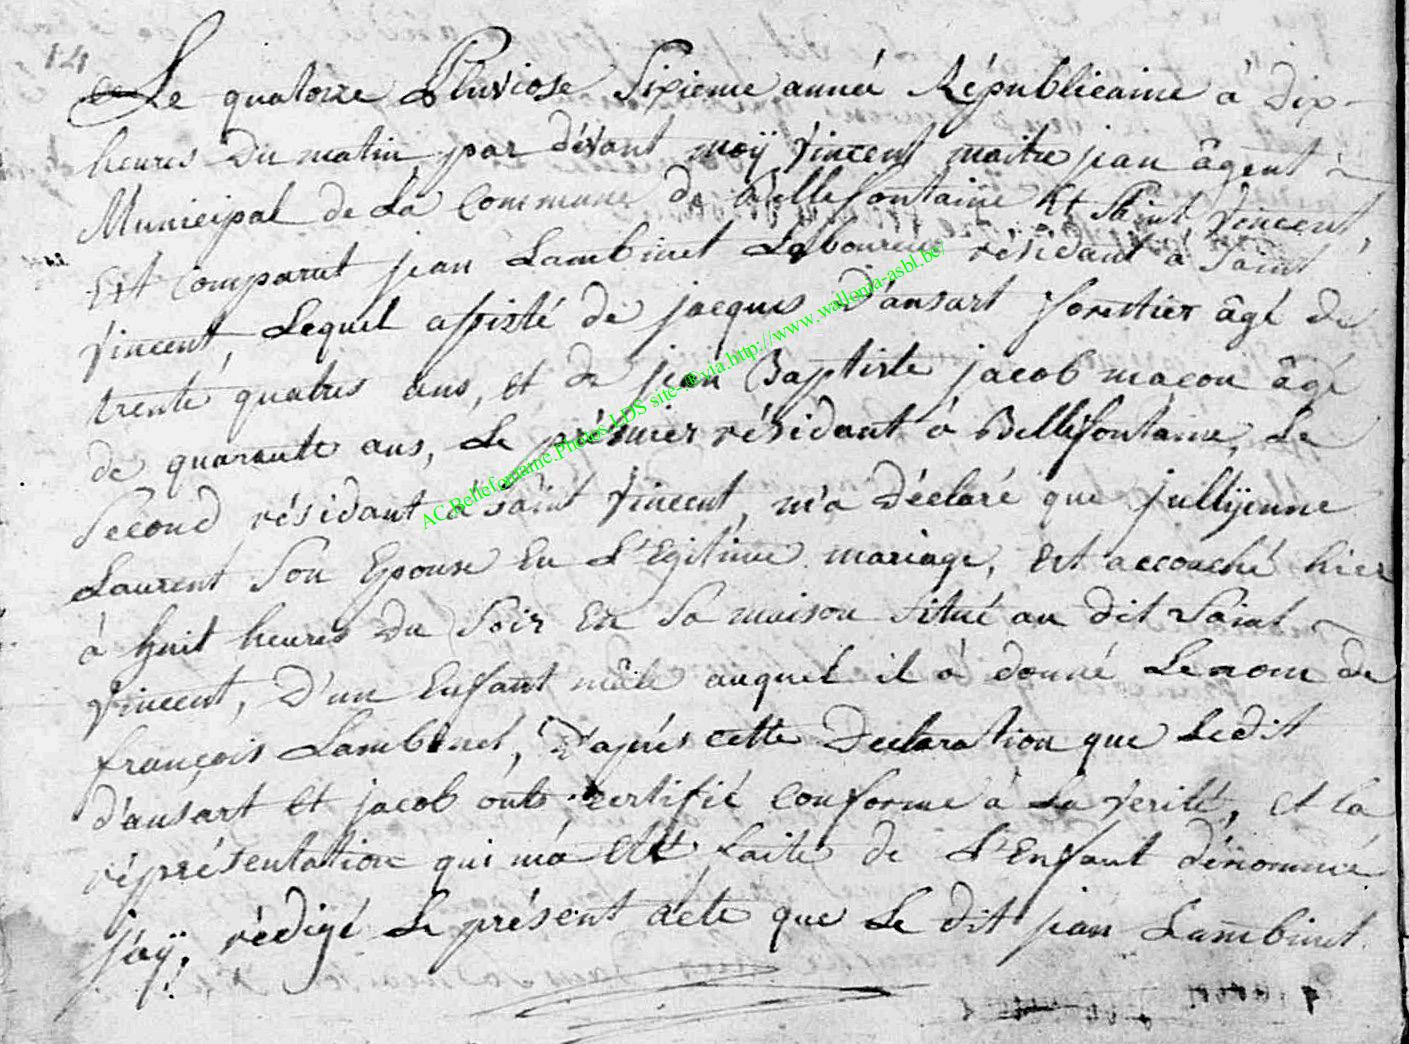 14
Le quatorze Pluviose Sixieme année Républicaine à dix
heures du matin par dévant moÿ Vincent maitrejean âgent
Municipal de La Commune de Bellefontaine Et Saint Vincent,
Est comparut jean Lambinet Laboureur résidant à Saint
Vincent, Lequel assisté de jacques D'ansart forettier âgé de
trente quatres ans, et de jean Baptiste jacob macon âgé
de quarante ans, Le prémier résidant à Bellefontaine, Le
Second résidant á saint Vincent, m'a Déclaré que jullÿenne
Laurent Son Epouse En L'Egitime mariage, Est accouché hier
à huit heures du Soir En Sa maison Situé au dit Saint
Vincent, D'un Enfant mâle auquel il à donné Le nom de
françois Lambinet, D'aprés cette Declaration que Ledit
d'ansart Et jacob onts certifié conforme à La Verité, et la
réprésentation qui m'a été faite de L'Enfant dénommé
j'aÿ, rédigé Le présent acte que Le dit jean Lambinet
AC.Bellefontaine.Photos.LDS site-@via.http://www.wallonia-asbl.be/